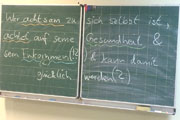 Wer achtsam zu sich selbst ist,
achtet auf seine Gesundheit &
sein Entkommen (12) & kann damit
glücklich werden (2)